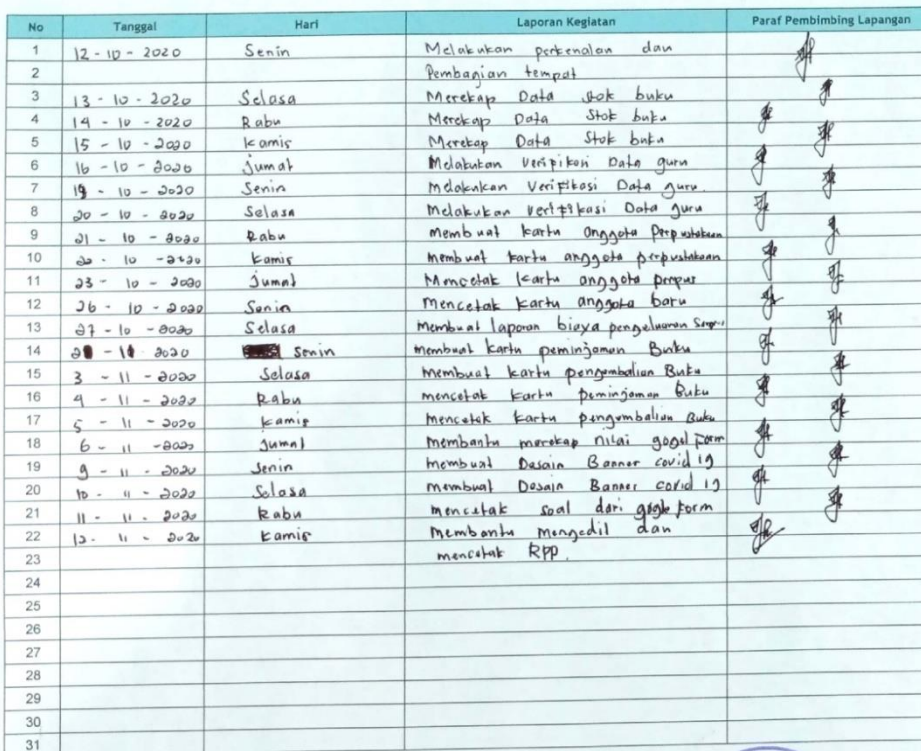 No Tanggal Hari Laporan Kegiatan Paraf Pembimbing Lapangan
1 12 - 10 - 2020 Senin Melakukan perkenalan dan
2 Pembagian tempat
3 13 - 10 - 2020 Selasa Merekap Data stok buku
4 14 - 10 - 2020 Rabu Merekap Data Stok buku
5 15 - 10 - 2020 Kamis Merekap Data Stok buku
6 16 - 10 - 2020 Jumat Melakukan Data guru
7 19 - 10 - 2020 Senin Melakukan Verifikasi Data guru.
8 20 - 10 - 2020 Selasa Melakukan verifikasi Data guru
9 21 - 10 - 2020 Rabu membuat kartu anggota Perpustakaan
10 - 10 - 2020 Kamis membuat kartu anggota perpustakaan
11 23 - 10 - 2020 Jumat Mencetak kartu anggota perpus
12 26 - 10 - 2020 Senin mencetak kartu anggota baru
13 27 - 10 - 2020 Selasa Membuat laporan biaya pengeluaran
14 2020 Senin membuat kartu peminjaman Buku
15 3 - 11 - 2020 Selasa membuat kartu pengembalian Buku
16 4 - 11 - 2020 Rabu mencetak kartu peminjaman Buku
17 5 - 11 - 2020 Kamis mencetak kartu pengembalian Buku
18 6 - 11 - 2020 Jumat Membantu merekap nilai gogel Form
19 9 - 11 - 2020 Senin membuat Desain Banner covid 19
20 10 - 11 - 2020 Selasa membuat Desain Banner covid 19
21 11 - 11 - 2020 Rabu mencetak soal dari gogle form
22 12 - 11 - 2020 Kamis Membantu mengedil dan
23 mencetak RPP.
24
25
26
27
28
29
30
31